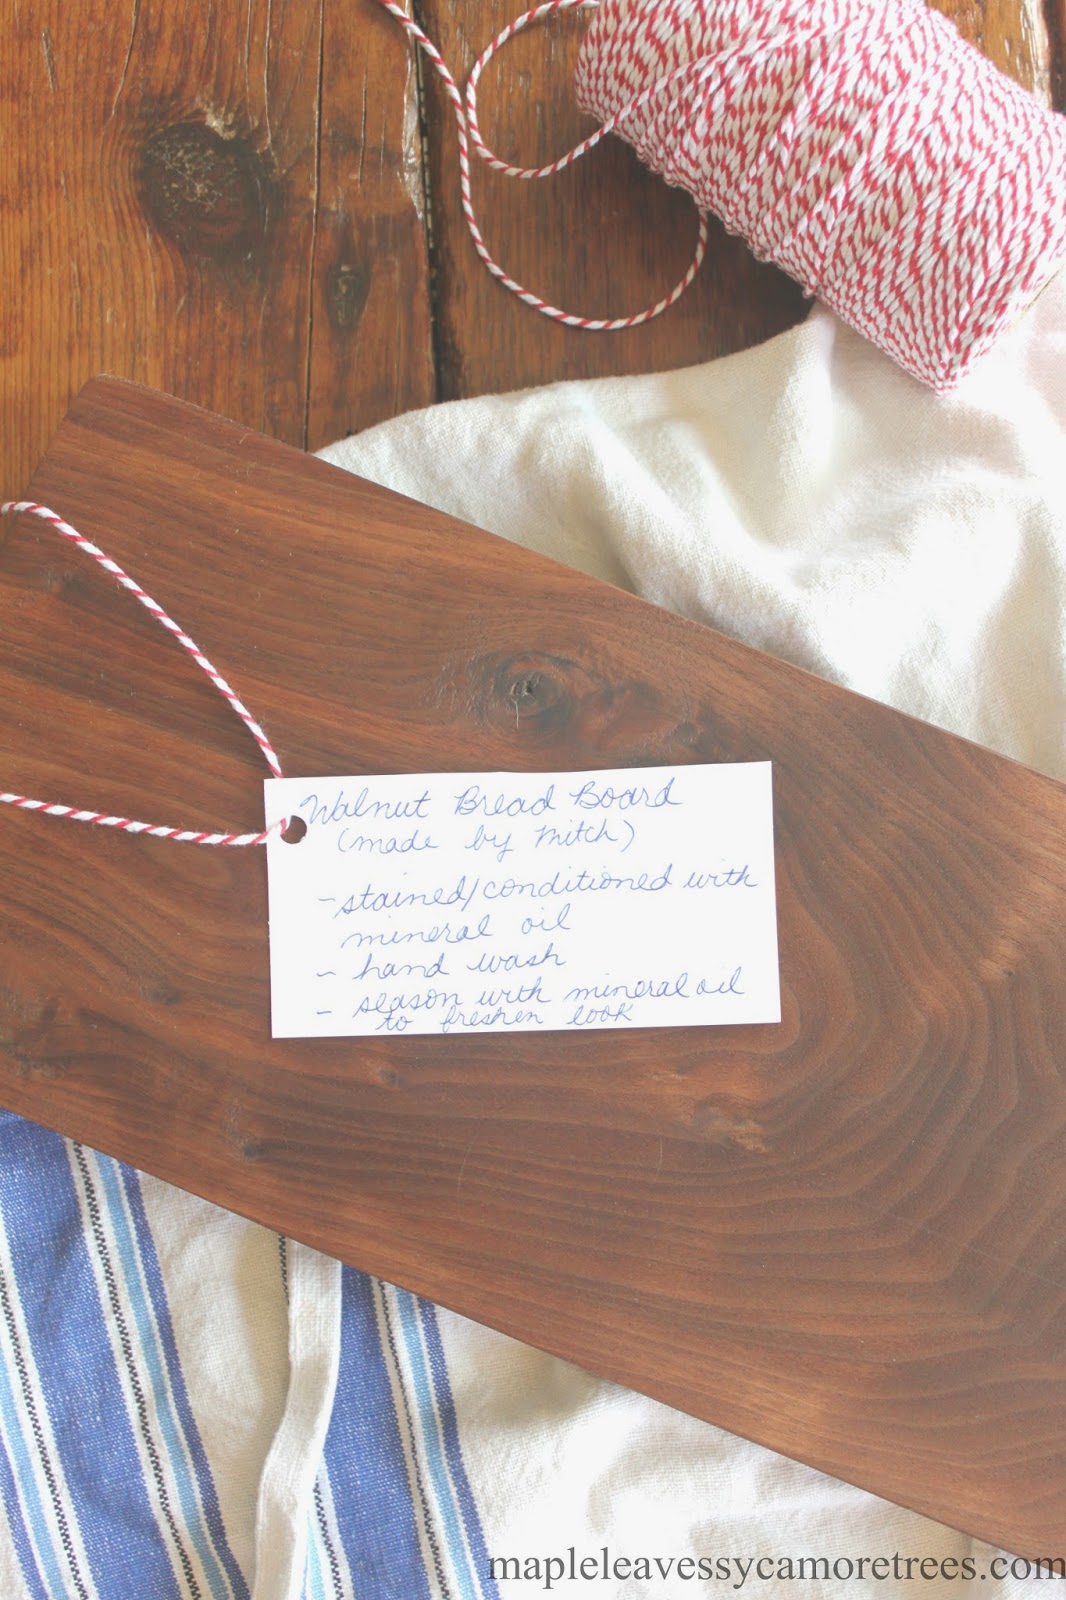 Walnut Bread Board
(made by Mitch)
- stained/conditioned with
mineral oil
- hand wash
- season with mineral oil
to freshen look
mapleleavessycamoretrees.com